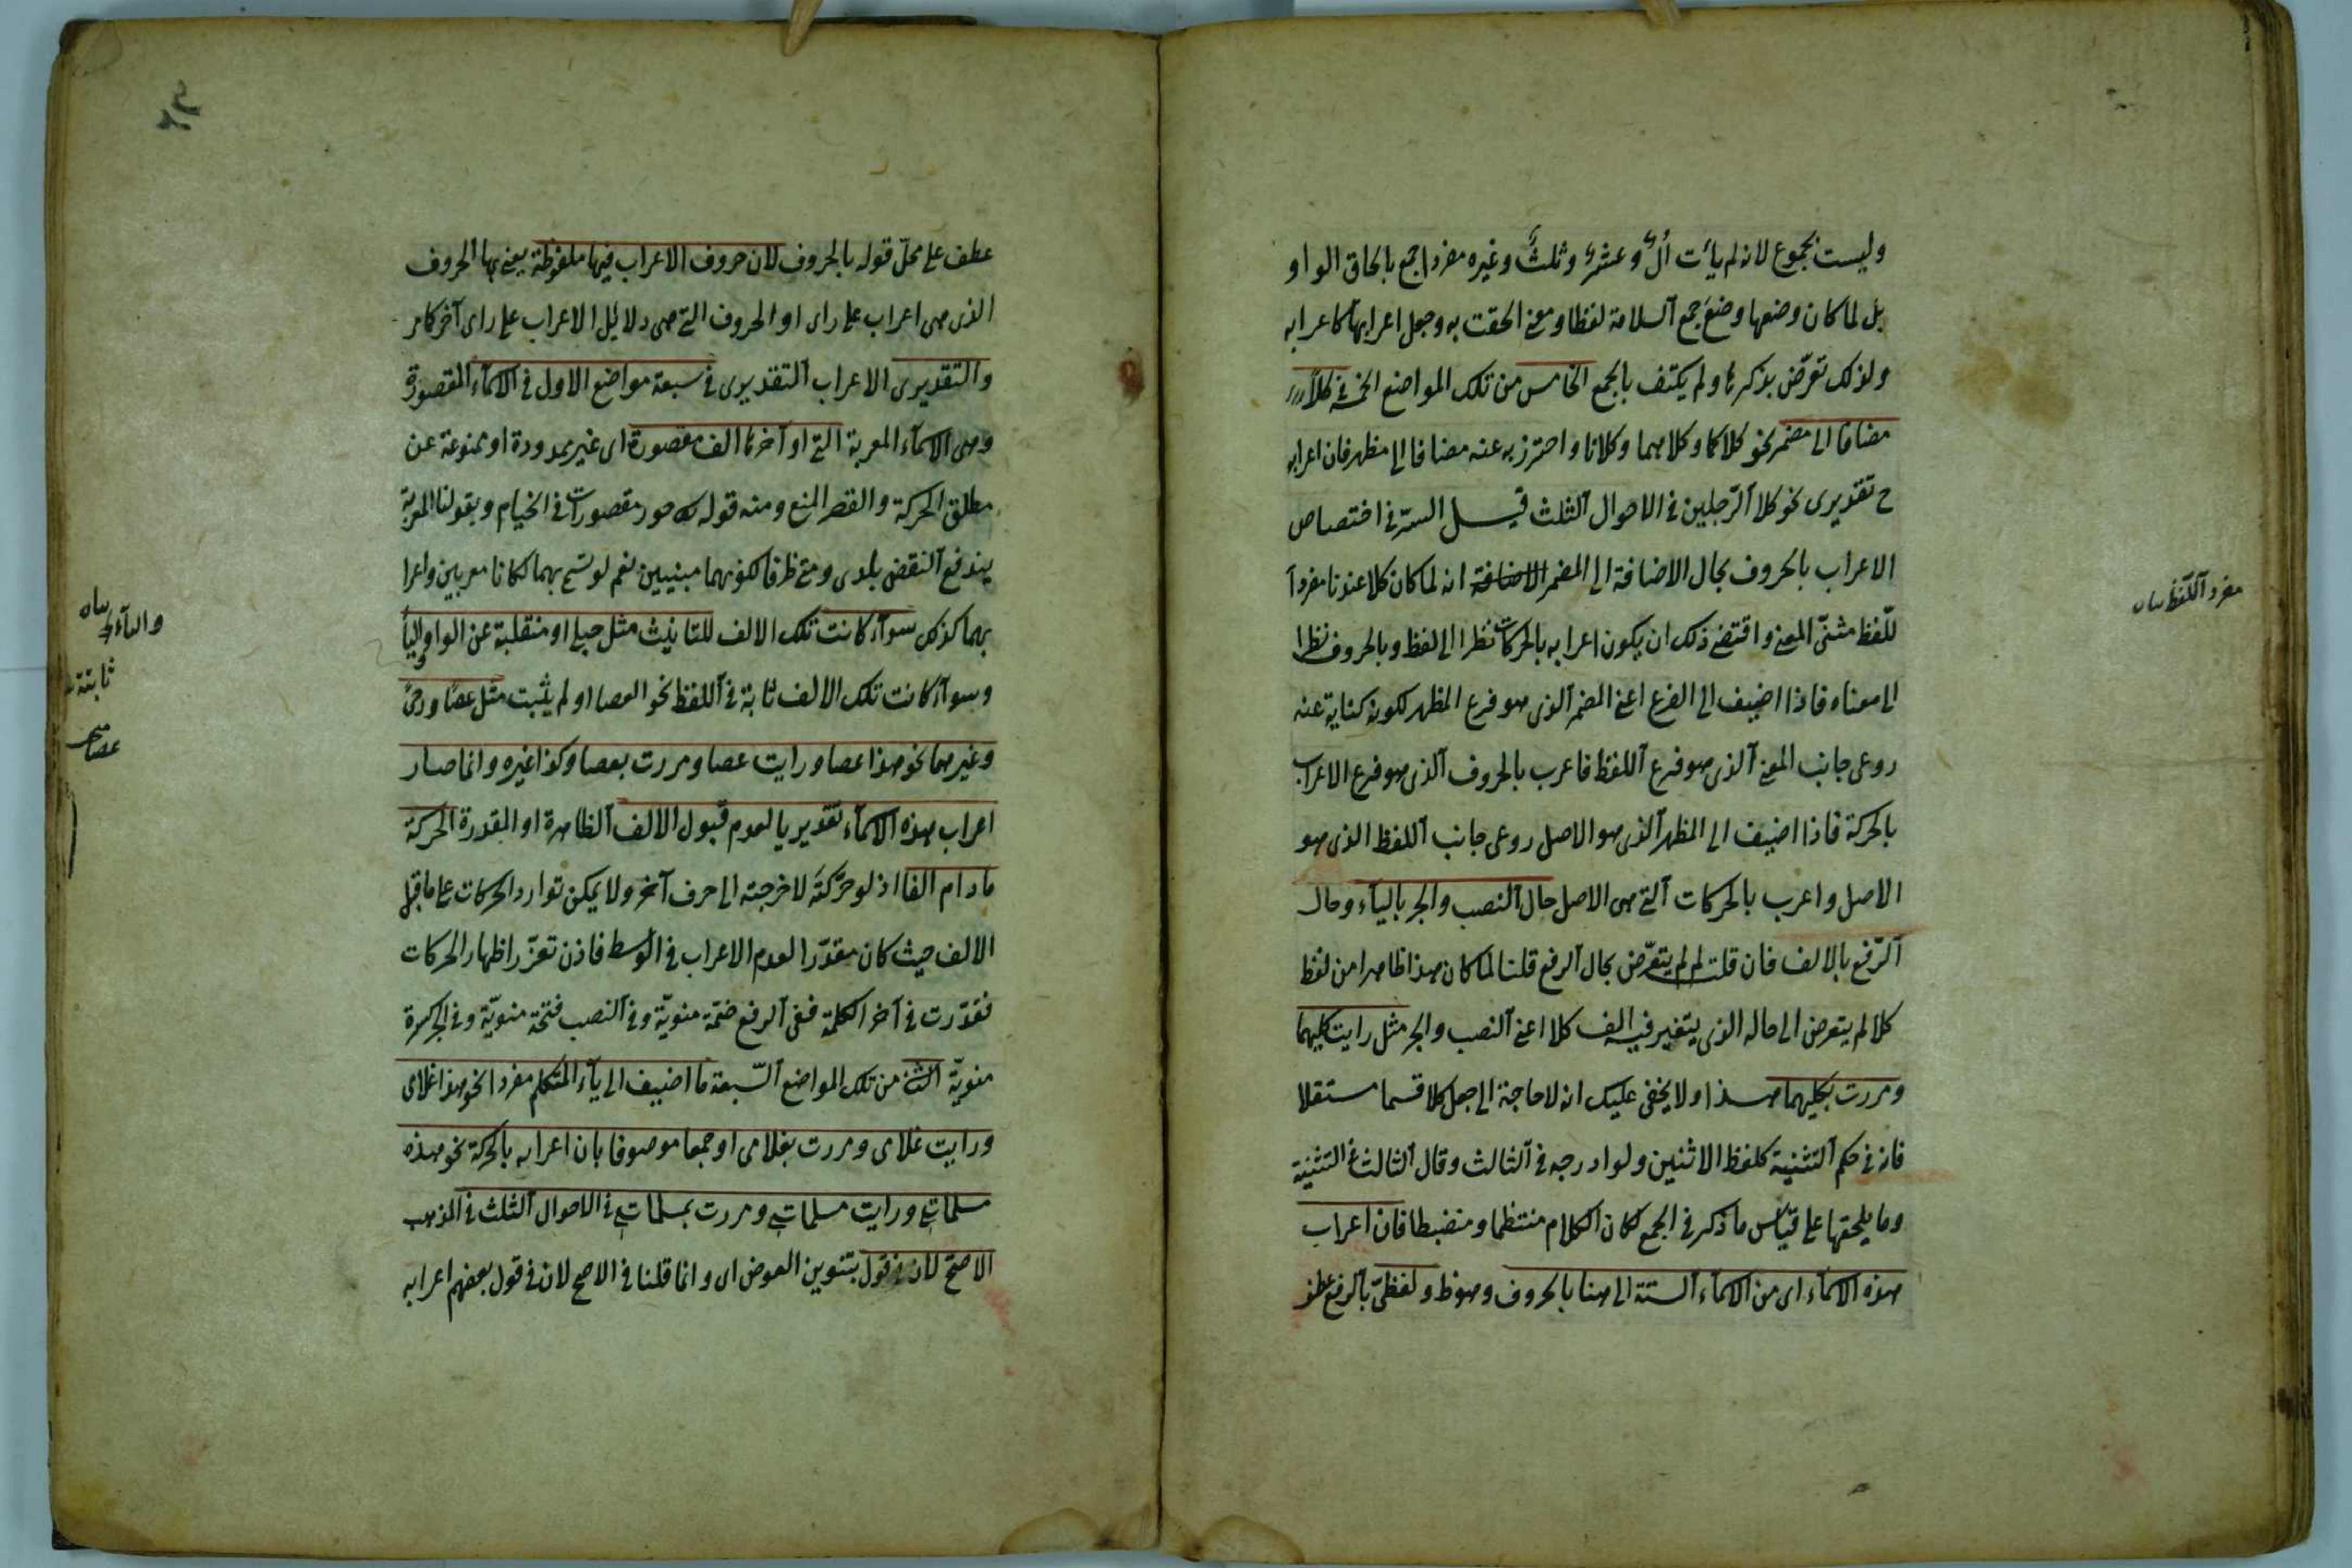 وليست بجموع لانه لم يأت ألٌ وعشرٌ وثلثٌ وغيره مفردا جمع بالحاق الواو
بل لما كان وضعها وضع جمع آلسلامة لفظا ومعنى الحقت به وجعل اعرابها كاعرابه
ولذلك تعرّض بذكرها ولم يكتف بالجمع الخامس من تلك المواضع الخمسة فى كلا
مضافا الى مضمر نحو كلاكما وكلاهما وكلانا واحترز به عنه مضافا الى مظهر فان اعرابه
ح تقديرى نحو كلا آلرّجلين فى الاحوال آلثلث قيل السرّ فى اختصاص
الاعراب بالحروف بحال الاضافة الى المضمر الاضافة انه لما كان كلا عندنا مفردآ
للّفظ مثنّى المعنى واقتضى ذلك ان يكون اعرابه بالحركات نظرا الى لفظ وبالحروف نظرا
الى معناه فاذا اضيف الى الفرع اعنى المضمر آلذى هو فرع المظهر لكونه كناية عنه
روعى جانب المعنى آلذى هو فرع آللفظ فاعرب بالحروف آلذى هو فرع الاعراب
بالحركة فاذا اضيف الى المظهر آلذى هو الاصل روعى جانب آللفظ الذى هو
الاصل واعرب بالحركات آلتى هى الاصل حال آلنصب والجر بالياء وحال
آلرّفع بالالف فان قلت لم لم يتعرّض بحال آلرفع قلنا لما كان هذا ظاهرا من لفظ
كلا لم يتعرض الى حاله الذى يتغير فيه الف كلا اعنى آلنصب والجر مثل رايت كليهما
ومررت بكليهما هذا ولا يخفى عليك انه لا حاجة الى جعل كلا قسما مستقلا
فانه فى حكم آلتثنية كلفظ الاثنين ولو ادرجه فى آلثالث وقال آلثالث فى التثنية
وما يلحقها على قياس ما ذكر فى الجمع لكان الكلام منتظما ومنضبطا فان اعراب
هذه الاسمآء اى من الاسمآء آلستة الى هنا بالحروف وهو ظ ولفظىّ بآلرفع عطف
مفرد آللّفظ
عطف على محلّ قوله بالحروف لان حروف الاعراب فيها ملفوظة يعنى بها الحروف
الذى هى اعراب على راى او الحروف التى هى دلائل الاعراب على راى آخر كما مر
والتقديرى الاعراب آلتقديرى فى سبعة مواضع الاول فى الاسمآء المقصورة
وهى الاسمآء المعربة التى او آخرها الف مقصورة اى غير ممدودة او ممنوعة عن
مطلق الحركة والقصر المنع ومنه قوله حور مقصورات فى الخيام وبقولنا المعربة
يندفع آلنقض بلدى ومتى ظرفا لكونهما مبنيين نعم لو سمى بهما لكانا معربين واعرا
بهما كذلك سوآء كانت تلك الالف للتانيث مثل حبلى او منقلبة عن الواو واليا
وسوآء كانت تلك الالف ثابتة فى آللفظ نحو العصا او لم يثبت مثل عصًا ورحىً
وغيرهما نحو هذا عصا ورايت عصا ومررت بعصا وكذا غيره وانما صار
اعراب هذه الاسمآء تقديريا لعدم قبول الالف آلظاهرة او المقدرة الحركة
مادام الفا اذ لو حرّكتَه لاخرجته الى حرف آخر ولا يمكن توارد الحركات على ما قبل
الالف حيث كان مقدّرا لعدم الاعراب فى الوسط فاذن تعذّر اظهار الحركات
فقدّرت فى آخر الكلمة ففى آلرفع ضمّة منويّة وفى آلنصب فتحة منويّة وفى الجر كسرة
منويّة الثانى من تلك المواضع آلسّبعة ما اضيف الى يآء المتكلم مفردا نحو هذا غلامى
ورايت غلامى ومررت بغلامى او جمعا موصوفا بان اعرابه بالحركة نحو هذه
مسلماتى ورايت مسلماتى ومررت بمسلماتى فى الاحوال آلثلث فى المذهب
الاصحّ لان فى قولٍ بتنوين العوض اى وانما قلنا فى الاصح لان فى قول بعضهم اعرابه
والياء
ثابتة
عصا